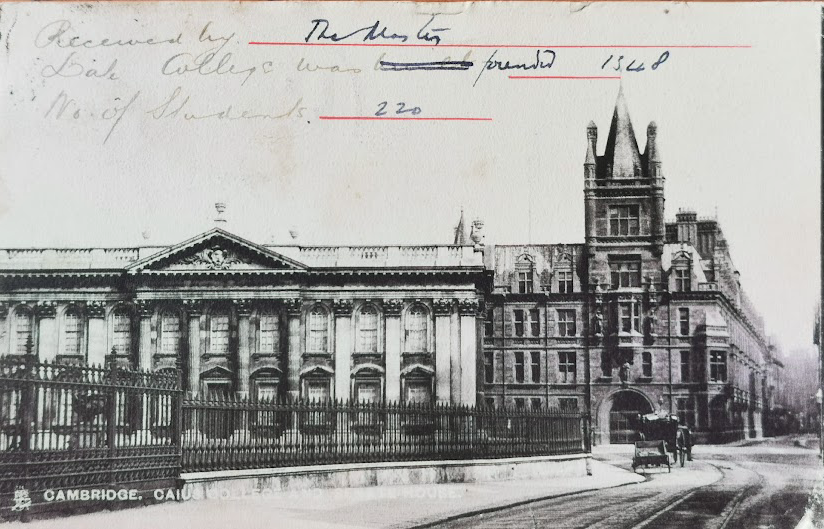 Received by The Master
Date College was founded 1348
No. of Students 220
CAMBRIDGE. CAIUS COLLEGE AND SENATE HOUSE